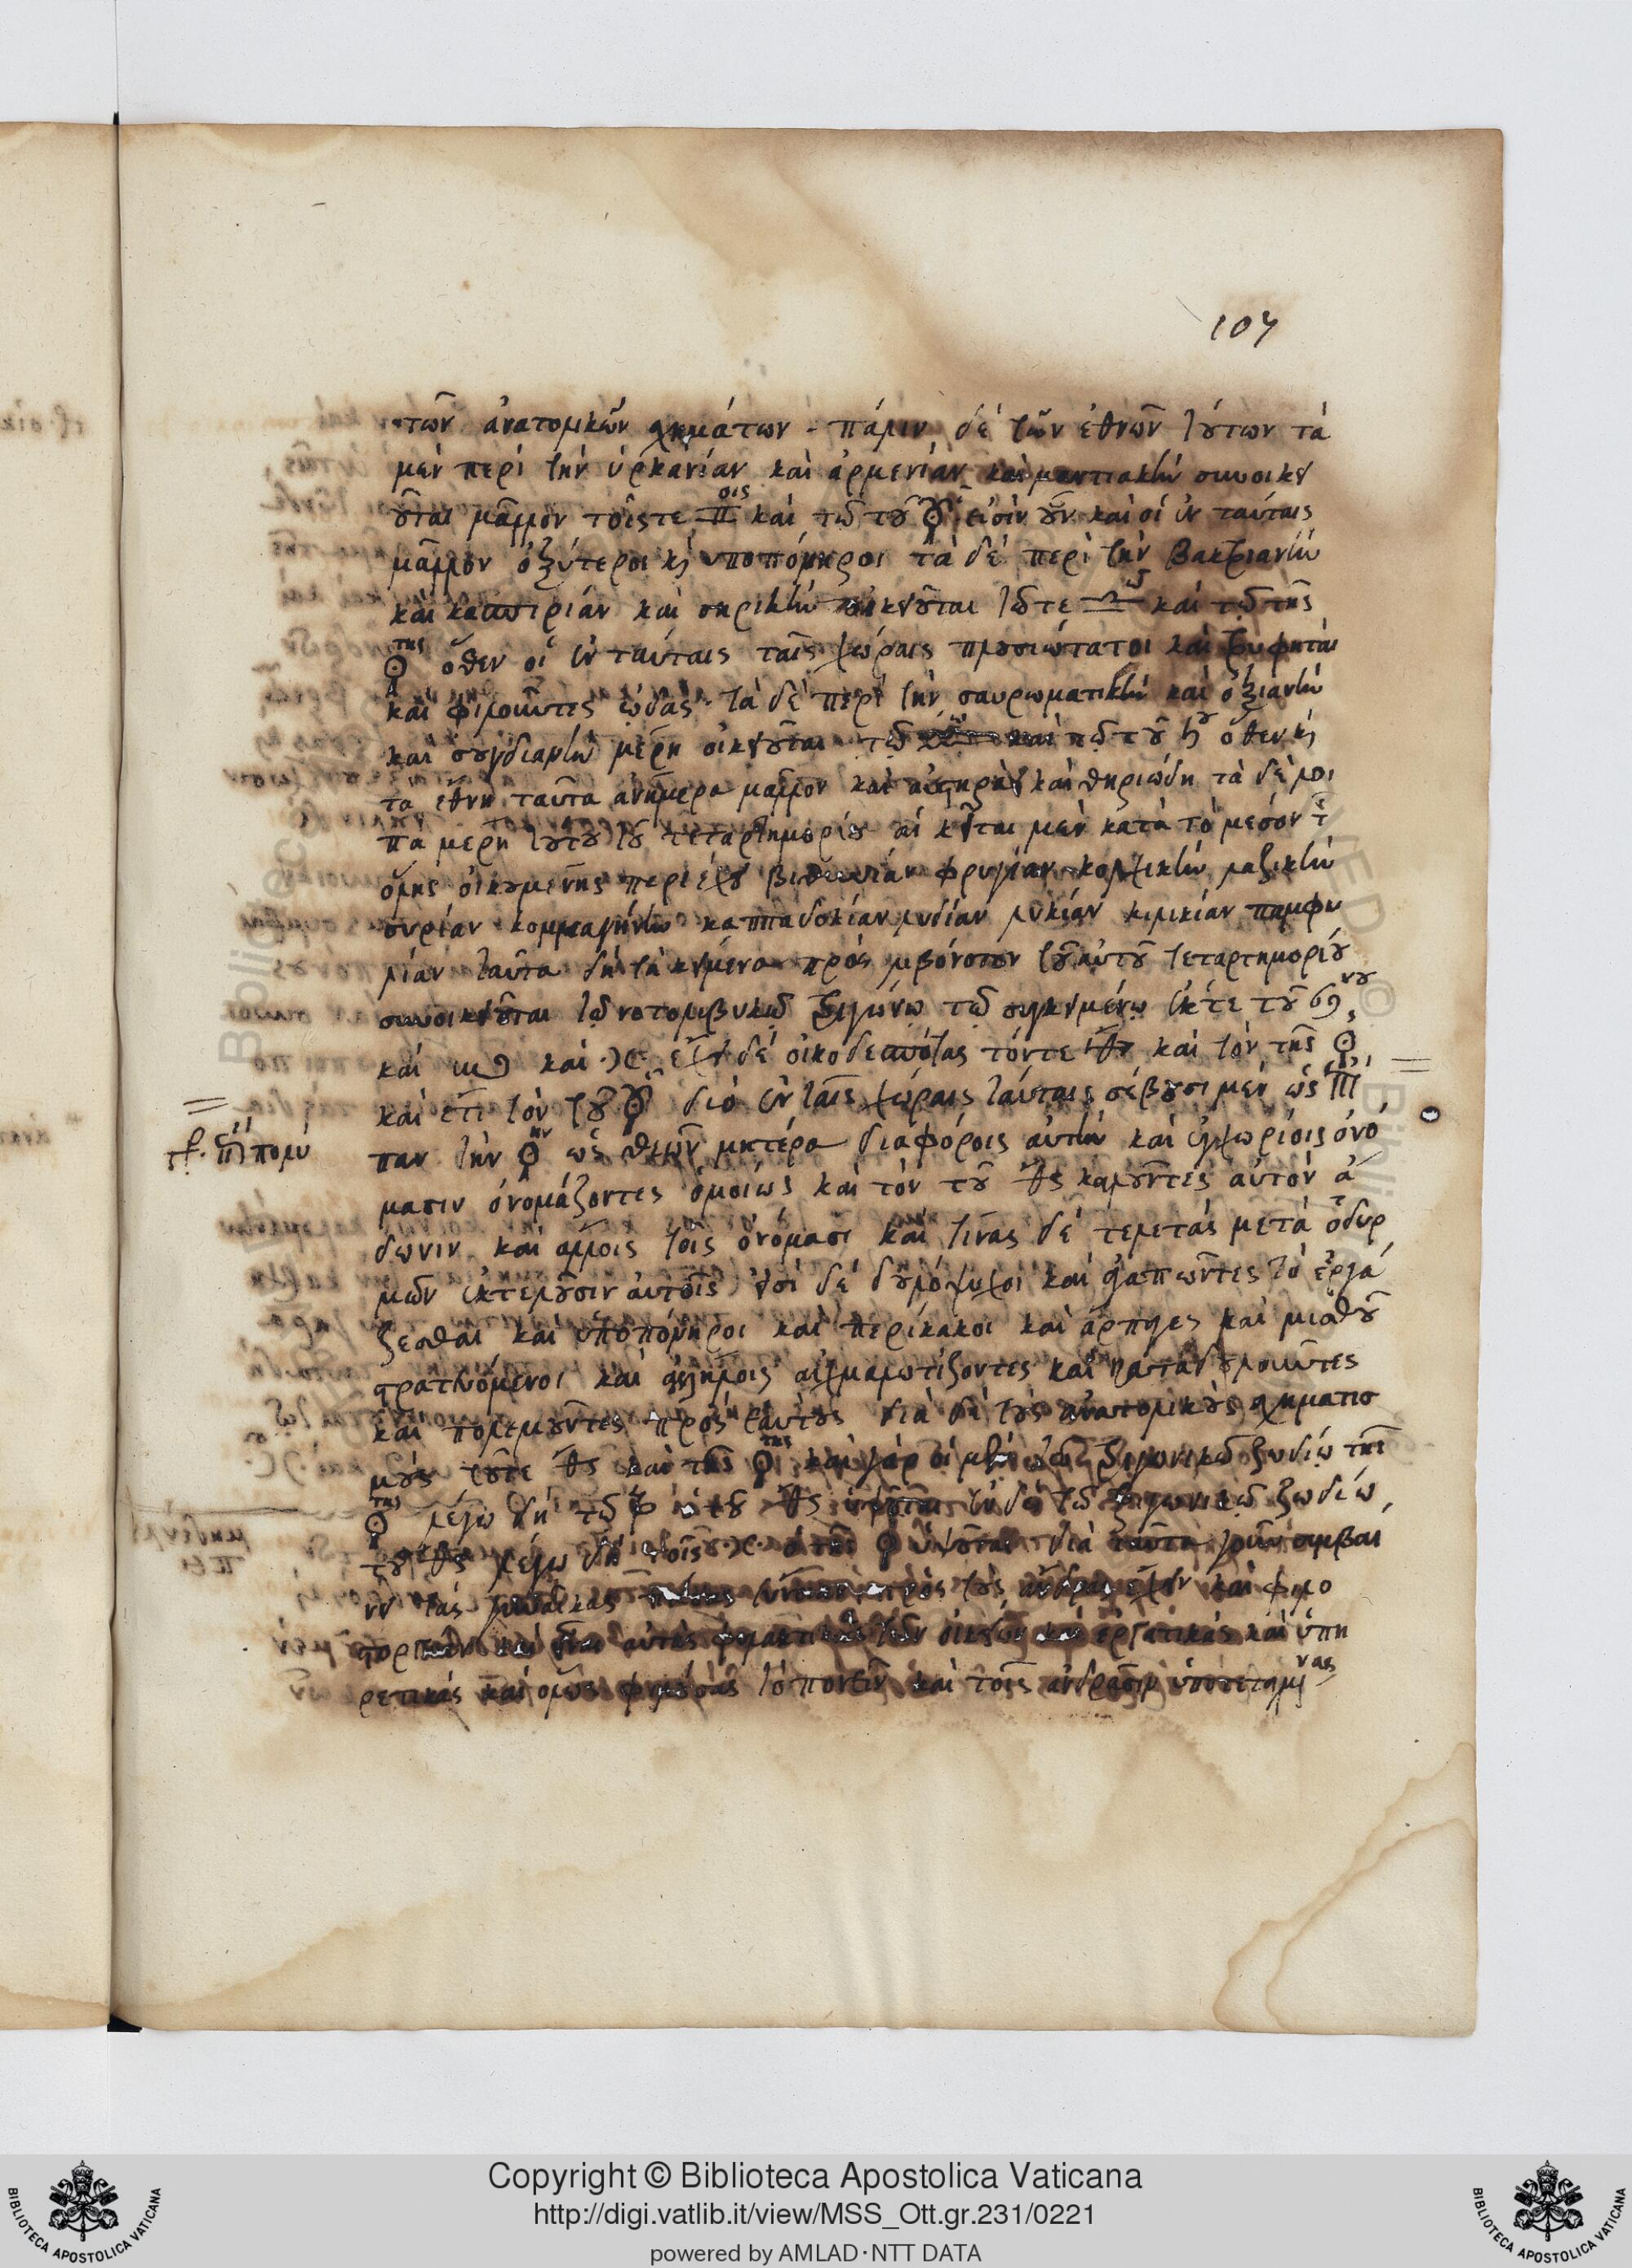 107
τῶν ἀνατολικῶν σχημάτων. πάλιν δὲ τῶν ἐθνῶν τούτων τὰ
μὲν περὶ τὴν ὑρκανίαν καὶ ἀρμενίαν καὶ μαντιακὴν συνοικει
οῦται μᾶλλον τοῖς τε ♊οις καὶ τῷ τοῦ ☿ εἰσὶν οὖν καὶ οἱ ἐν ταύταις
μᾶλλον ὀξύτεροι κὶ ὑποπόνηροι τὰ δὲ περὶ τὴν βακτριανὴν
καὶ κασπιρίαν καὶ σηρικὴν οἰκειοῦται τῷ τε ♎ῷ καὶ τῷ τῆς
♀της ὅθεν οἱ ἐν ταύταις ταῖς χώραις πλουσιώτατοι καὶ τρυφηταὶ
καὶ φιλοῦντες ὠδάς. τὰ δὲ περὶ τὴν σαυρωματικὴν καὶ ὀξιανὴν
καὶ σουγδιανὴν μέρη οἰκειοῦται τῷ καὶ τῷ τοῦ ♄ου ὅθεν κὶ
τὰ ἔθνη ταῦτα ἀνήμερα μᾶλλον καὶ αὐστηρὰ καὶ θηριώδη τὰ δὲ λοι
πὰ μέρη τούτου τοῦ τεταρτημορίου ἃ κεῖται μὲν κατὰ τὸ μέσον τ
ὅλης οἰκουμένης περιέχει βιθυνίαν φρυγίαν κολχικὴν λαζικὴν
συρίαν κομμαγηνὴν καππαδοκίαν λυδίαν λυκίαν κιλικίαν παμφυ
λίαν ταῦτα δὴ τὰ κείμενα πρὸς λιβόνοτον τοῦ αὐτοῦ τεταρτημορίου
συνοικειοῦται τῷ νοτολιβυκῷ τριγώνῳ τῷ συγκειμένῳ ἔκ τε τοῦ ♋νου
καὶ ♏ καὶ ♓ ἔχει δὲ οἰκοδεσπότας τόν τε ♂ καὶ τὸν τῆς ♀
καὶ ἔτι τὸν τοῦ ☿ διὸ ἐν ταῖς χώραις ταύταις σέβουσι μὲν ὡς ἐπὶ
παν τὴν ♀ην ὡς θεῶν μητέρα διαφόροις αὐτὴν καὶ ἐγχωρίοις ὀνό
μασιν ὀνομάζοντες ὁμοίως καὶ τὸν τοῦ ♂ς καλοῦντες αὐτὸν ἄ
δωνιν καὶ ἄλλοις τοῖς ὀνόμασι καὶ τινὰς δὲ τελετὰς μετὰ ὀδυρ
μῶν ἐκτελοῦσιν αὐτοῖς εἰσὶ δὲ δουλόψυχοι καὶ ἀγαπῶντες τὸ ἐργά
ζεσθαι καὶ ὑποπόνηροι καὶ περίκακοι καὶ ἅρπαγες καὶ μισθοῦ
στρατευόμενοι καὶ ἀλλήλοις αἰχμαλωτίζοντες καὶ καταδουλοῦντες
καὶ πολεμοῦντες πρὸς ἑαυτοὺς διὰ δὲ τοὺς ἀνατολικοὺς σχηματισ
μοὺς τοῦτε ♂ς καὶ τῆς ♀της καὶ γὰρ τριγωνικῷ ζωδίῳ τῆς
♀της λέγω δὴ τῷ ♑ ὁ τοῦ ♂ς ὑψοῦται ἐν δὲ τῷ τριγωνικῷ ζωδίῳ
τοῦ ♂ς λέγω δὴ τοῖς ♓ ὁ τῆς ♀ ὑψοῦται διὰ ταῦτα γοῦν συμβαί
νει τὰς γυναῖκας πρὸς τοὺς ἄνδρας ἔχειν καὶ φιλο
στοργίαν καὶ εἶναι αὐτὰς φυλακτικὰς τῶν οἰκείων καὶ ἐργατικὰς καὶ ὑπη
ρετικὰς καὶ ὅλως τὸ πονεῖν καὶ τοῖς ἀνδράσιν ὑποτεταγμένας
Copyright © Biblioteca Apostolica Vaticana
http://digi.vatlib.it/view/MSS_Ott.gr.231/0221
powered by AMLAD·NTT DATA
BIBLIOTECA APOSTOLICA VATICANA
BIBLIOTECA APOSTOLICA VATICANA